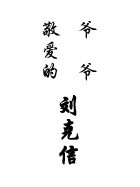 敬爱的
爷爷
刘克信